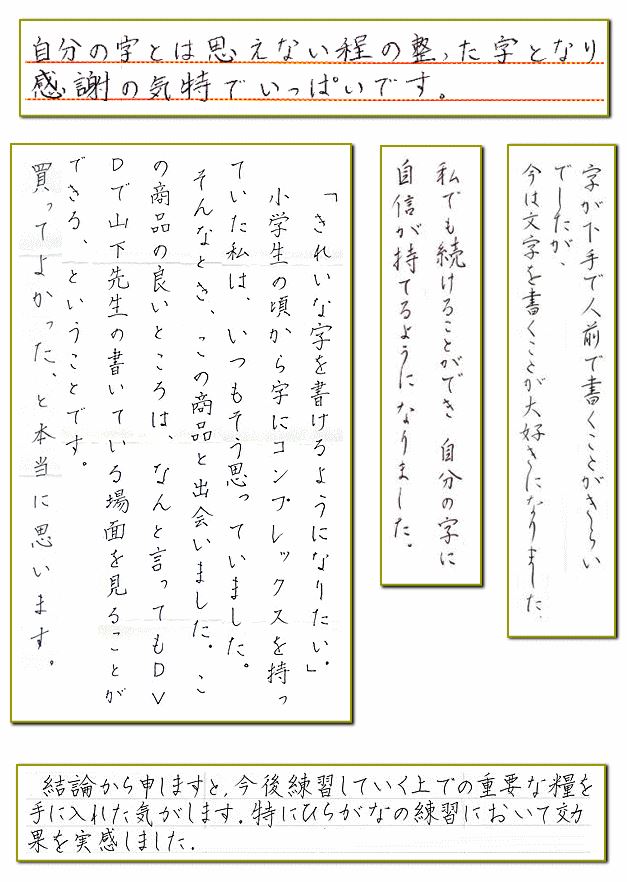 自分の字とは思えない程の整った字となり
感謝の気特でいっぱいです。
字が下手で人前で書くことがきらい
でしたが、
今は文字を書くことが大好きになりました.
私でも続けることができ 自分の字に
自信が持てるようになりました.
「きれいな字を書けるようになりたい.」
小学生の頃から字にコンプレックスを持っ
ていた私は、いつもそう思っていました。
そんなとき、この商品と出会いました。こ
の商品の良いところは、なんと言ってもDV
Dで山下先生の書いている場面を見ることが
できる、ということです。
買ってよかった、と本当に思います。
結論から申しますと,今後練習していく上での重要な糧を
手に入れた気がします.特にひらがなの練習において効
果を実感しました.